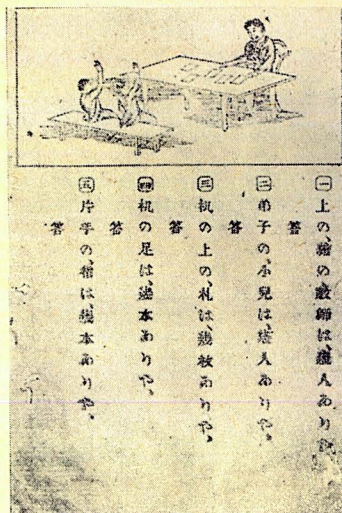 ㊀上の、猪の敎師は、幾人ありや、
答
㊁弟子の、小兒は、幾人ありや、
答
㊂机の上の札は、幾枚ありや、
答
㊃机の足は、幾本ありや、
答
㊄片手の、指は、幾本ありや、
答